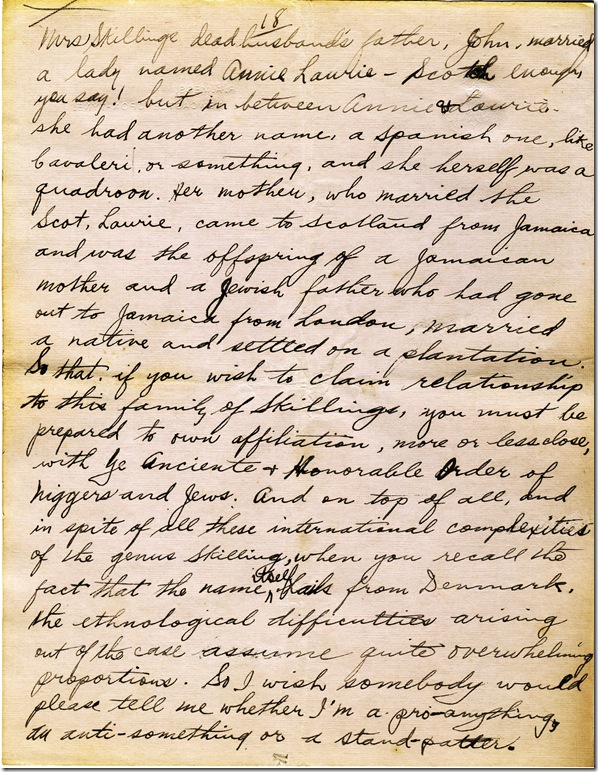 18
Mrs Skillings dead husband's father, John, married
a lady named Annie Laurie - Scotch enough,
you say! but in between Annie & Laurie
she had another name, a Spanish one, like
Cavaleri, or something, and she herself was a
quadroon. Her mother, who married the
Scot, Laurie, came to Scotland from Jamaica
and was the offspring of a Jamaican
mother and a Jewish father who had gone
out to Jamaica from London, married
a native and settled on a plantation.
So that, if you wish to claim relationship
to this family of Skillings, you must be
prepared to own affiliation, more or less close,
with Ye Anciente & Honorable Order of
Niggers and Jews. And on top of all, and
in spite of all these international complexities
of the genus Skilling, when you recall the
fact that the name itself hails from Denmark,
the ethnological difficulties arising
out of the case assume quite overwhelming
proportions. So I wish somebody would
please tell me whether I'm a pro-anything,
an anti-something or a stand-patter.